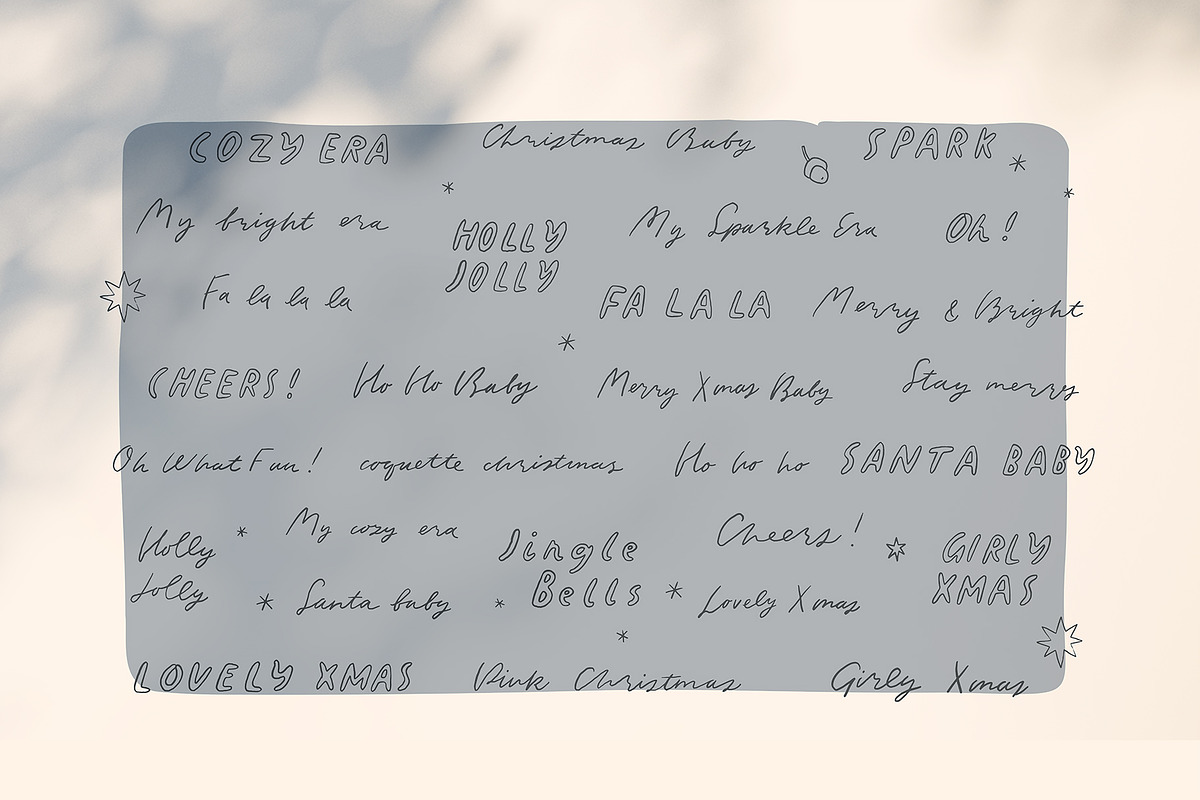 COZY ERA
Christmas Baby
SPARK
My bright era
HOLLY
JOLLY
My Sparkle Era
Oh!
Fa la la la
FA LA LA
Merry & Bright
CHEERS!
Ho Ho Baby
Merry Xmas Baby
Stay merry
Oh What Fun!
coquette christmas
Ho ho ho
SANTA BABY
Holly
Jolly
My cozy era
Jingle
Bells
Cheers!
GIRLY
XMAS
Santa baby
Lovely Xmas
LOVELY XMAS
Pink Christmas
Girly Xmas